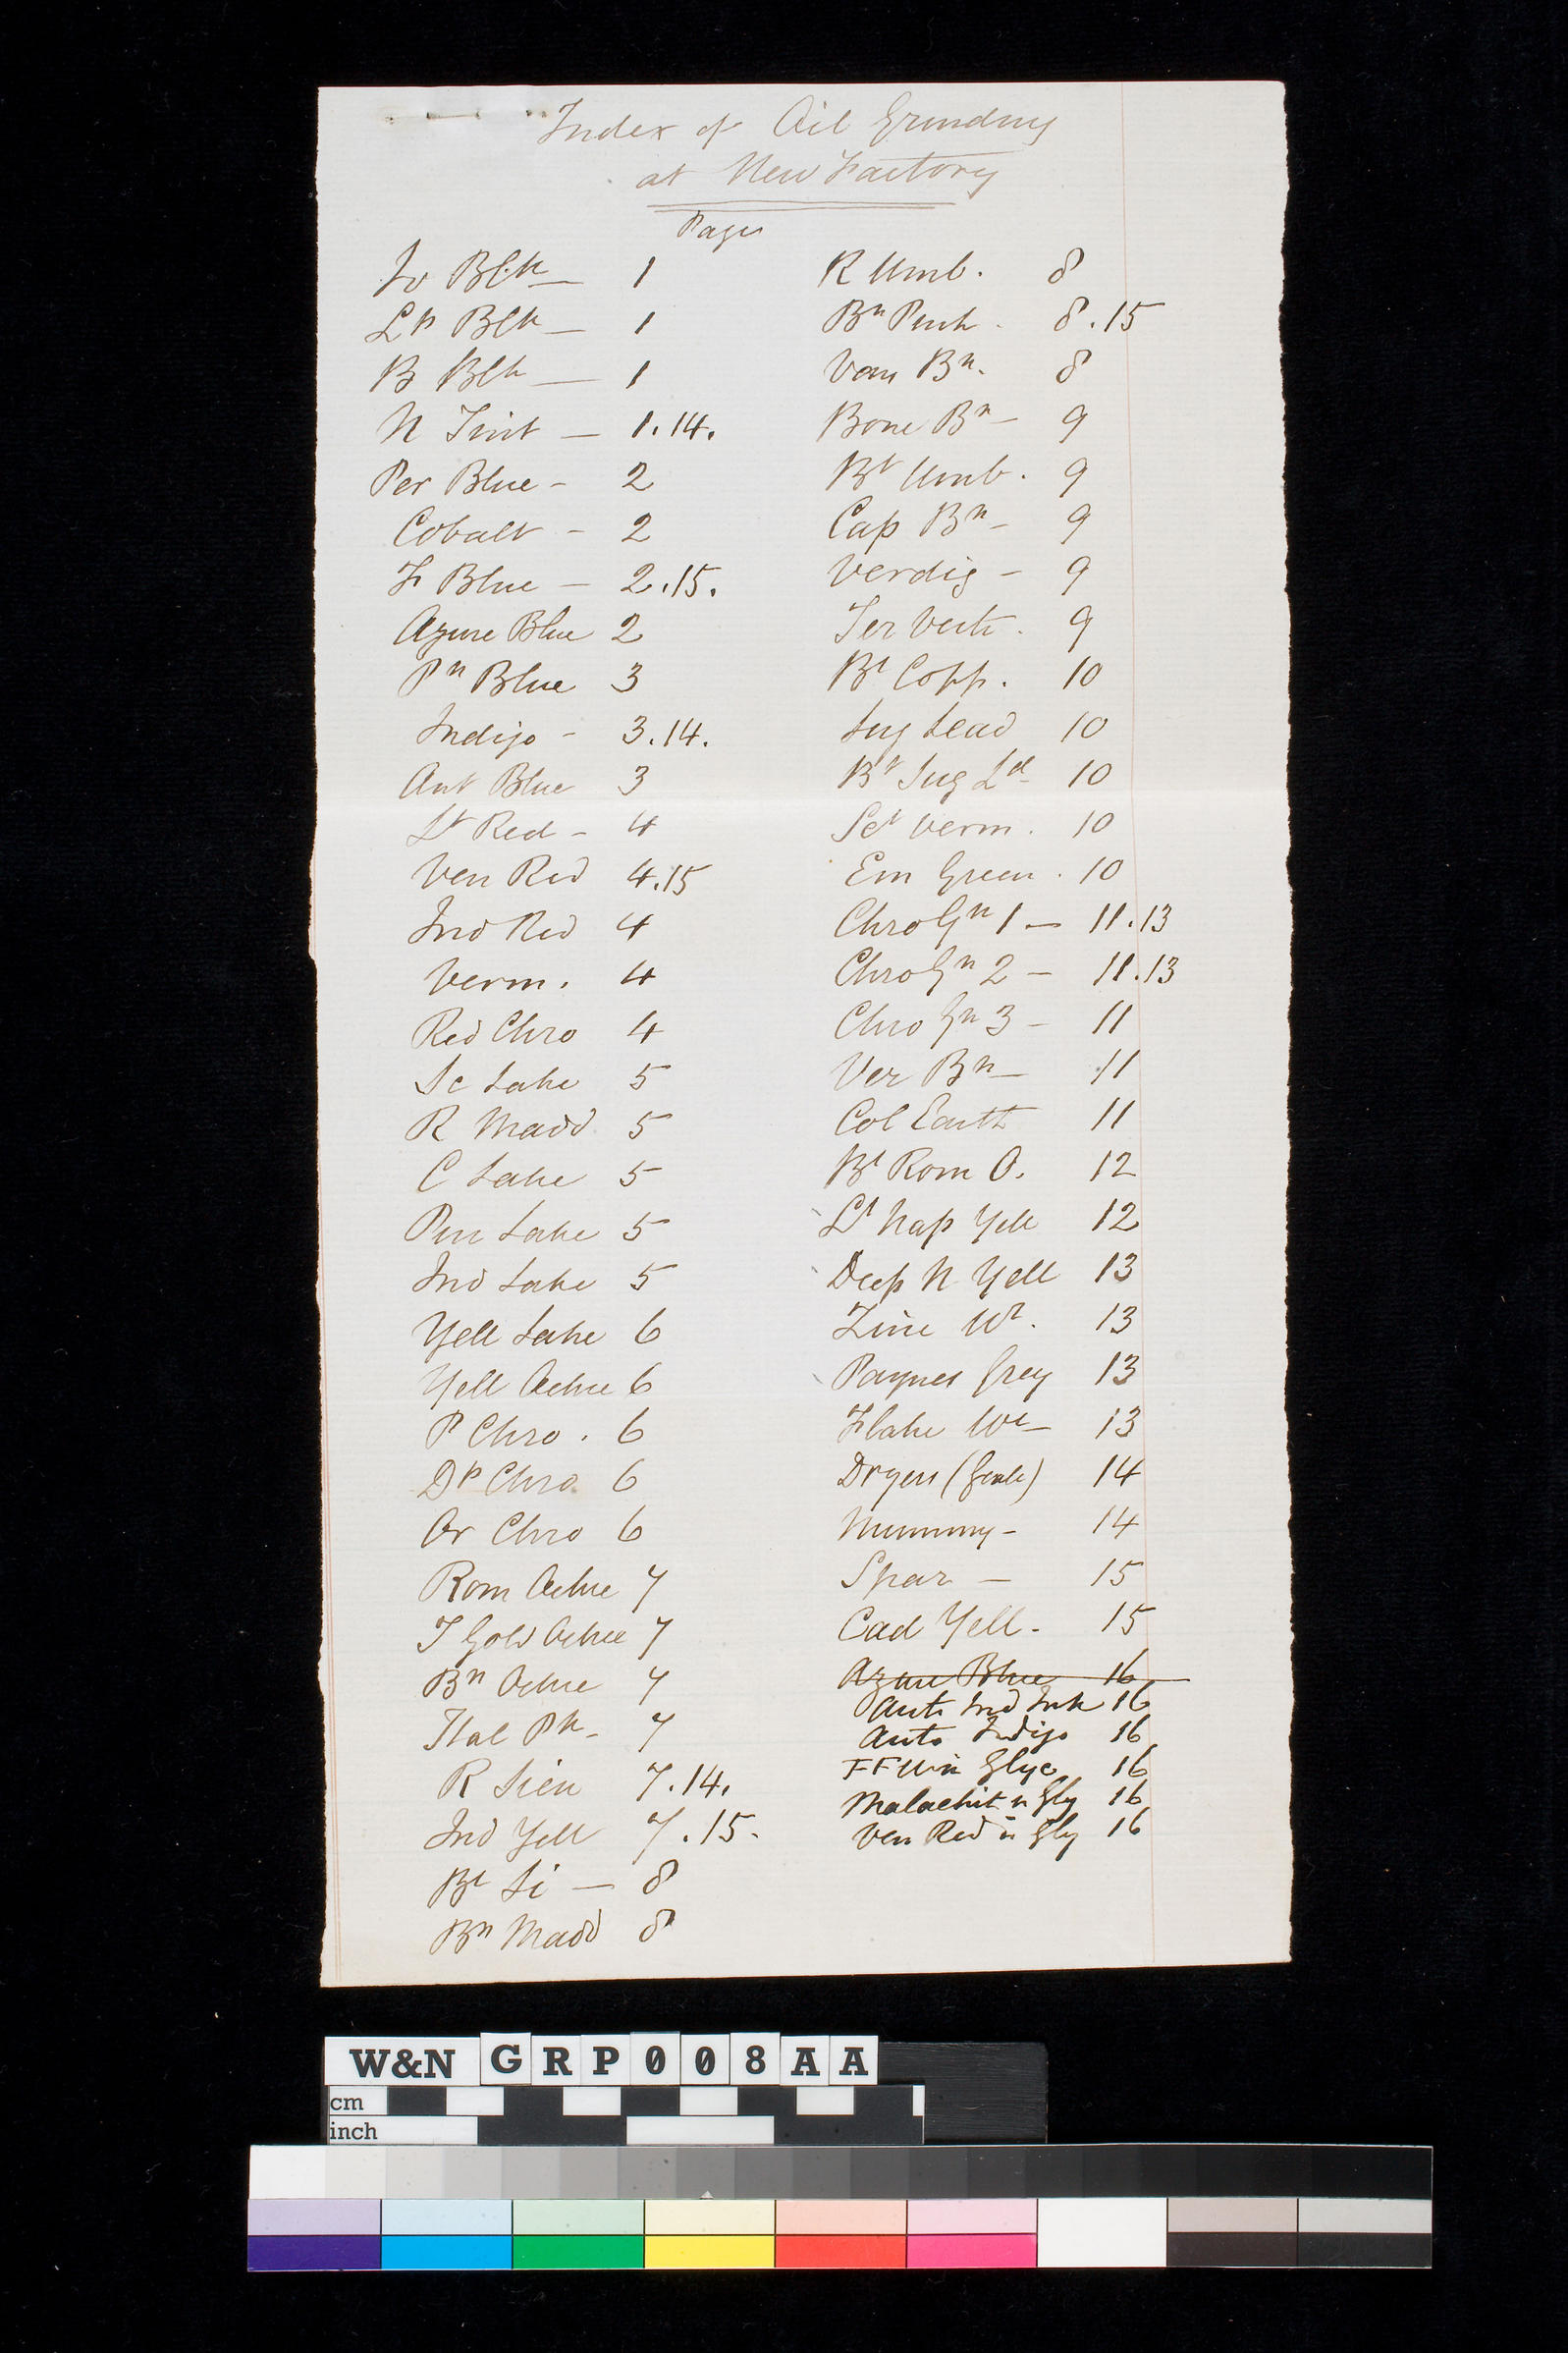 Index of Oil Grinding
at New Factory
Pages
Iv Blk — 1
Lp Blk — 1
B Blk — 1
N Tint — 1.14.
Per Blue - 2
Cobalt - 2
Fr Blue — 2.15.
Azure Blue 2
Pn Blue 3
Indigo - 3.14.
Ant Blue 3
Lt Red - 4
Ven Red 4.15
Ind Red 4
Verm. 4
Red Chro 4
Sc Lake 5
R Madd 5
C Lake 5
Pur Lake 5
Ind Lake 5
Yell Lake 6
Yell Ochre 6
P Chro . 6
Dp Chro. 6
Or Chro 6
Rom Ochre 7
T Gold Ochre 7
Bn Ochre 7
Ital Pk - 7
R Sien 7.14.
Ind Yell 7.15.
Bt Si — 8
Bn Madd 8
R Umb. 8
Bn Pink . 8.15
Van Bn. 8
Bone Bn - 9
Bt Umb. 9
Cap Bn - 9
Verdig - 9
Ter Verte . 9
Bt Copp. 10
Sug Lead 10
Bt Sug Ld 10
Sct Verm. 10
Em Green . 10
Chro Gn 1 — 11.13
Chro Gn 2 — 11.13
Chro Gn 3 - 11
Ver Bn — 11
Col Earth 11
Bt Rom O. 12
Lt Nap Yell 12
Deep N Yell 13
Zinc Wt. 13
Paynes Grey 13
Flake We - 13
Dryers ( ) 14
Mummy - 14
Spar — 15
Cad Yell - 15
Azure Blue 16
Auto Ind Ink 16
Auto Indigo 16
FF in Glyc 16
Malachit n Gly 16
Ven Red in Gly 16
W&N GRP008AA
cm
inch